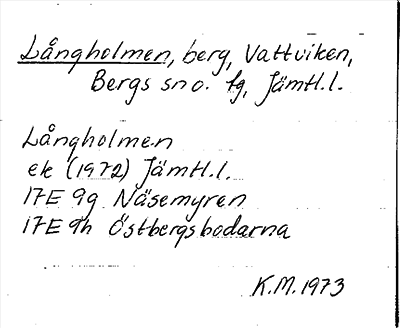 Långholmen, berg, Vattviken,
Bergs sn o. fg, Jämtl.l.
Långholmen
ek (1972) Jämtl.l.
17E 9g Näsemyren
17E 9h Östbergsbodarna
K.M.1973